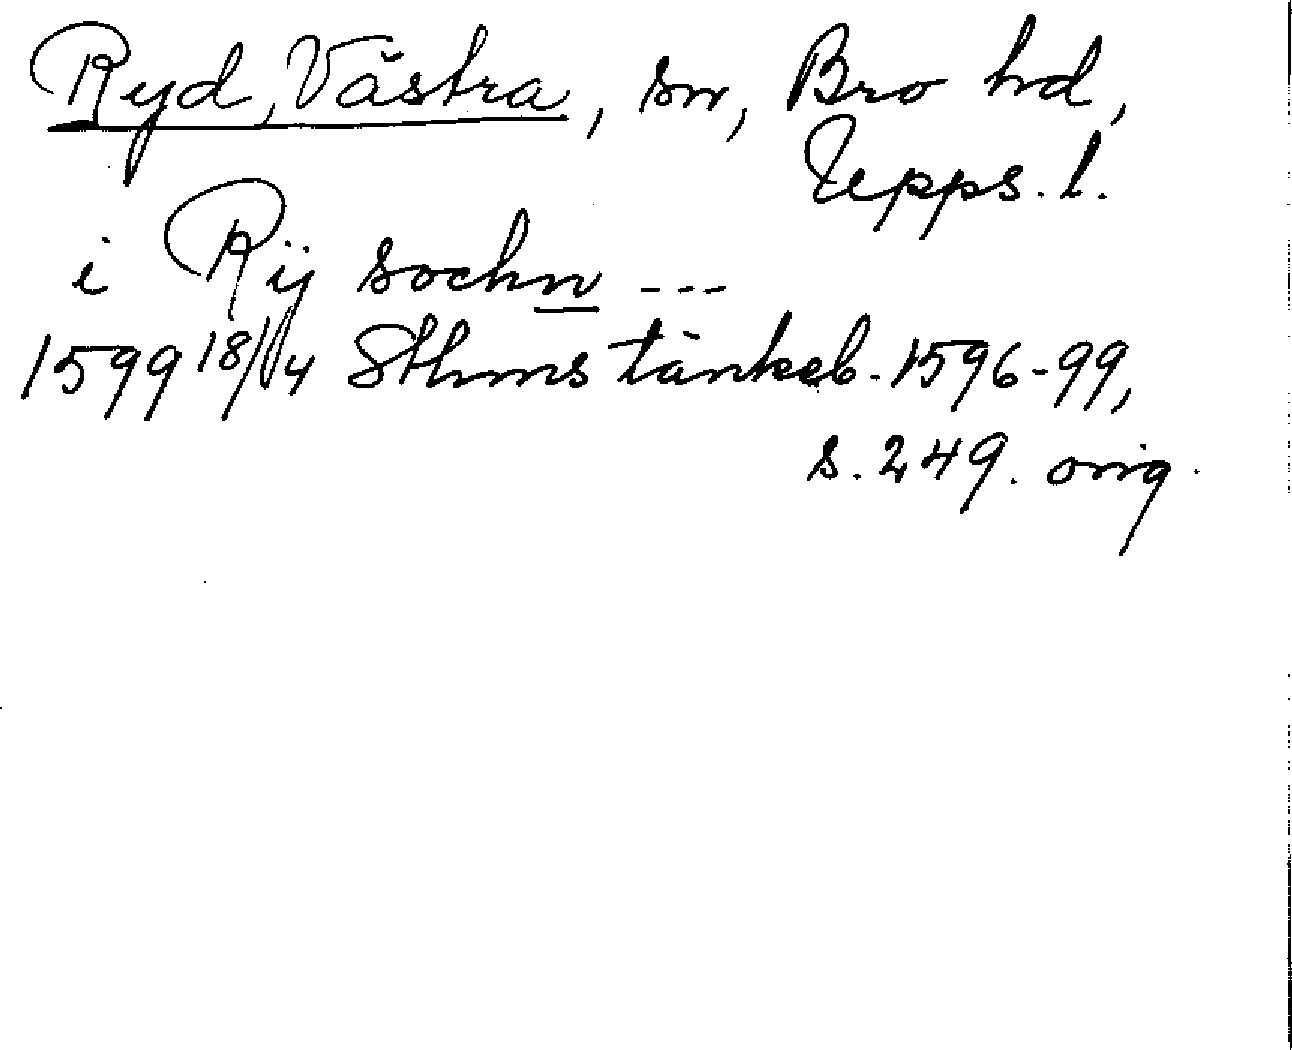 Ryd, Västra, sn, Bro hd,
Upps. l.
i Rÿ sochn ---
1599 18/4 Sthms tänkeb. 1596-99,
s. 249. orig.